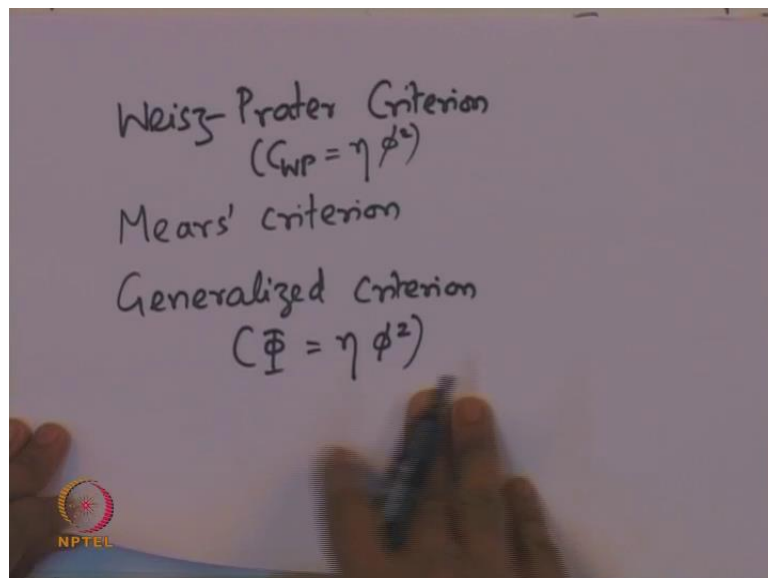 Weisz-Prater Criterion
(C_WP = η φ²)
Mears' criterion
Generalized criterion
(Φ = η φ²)
NPTEL